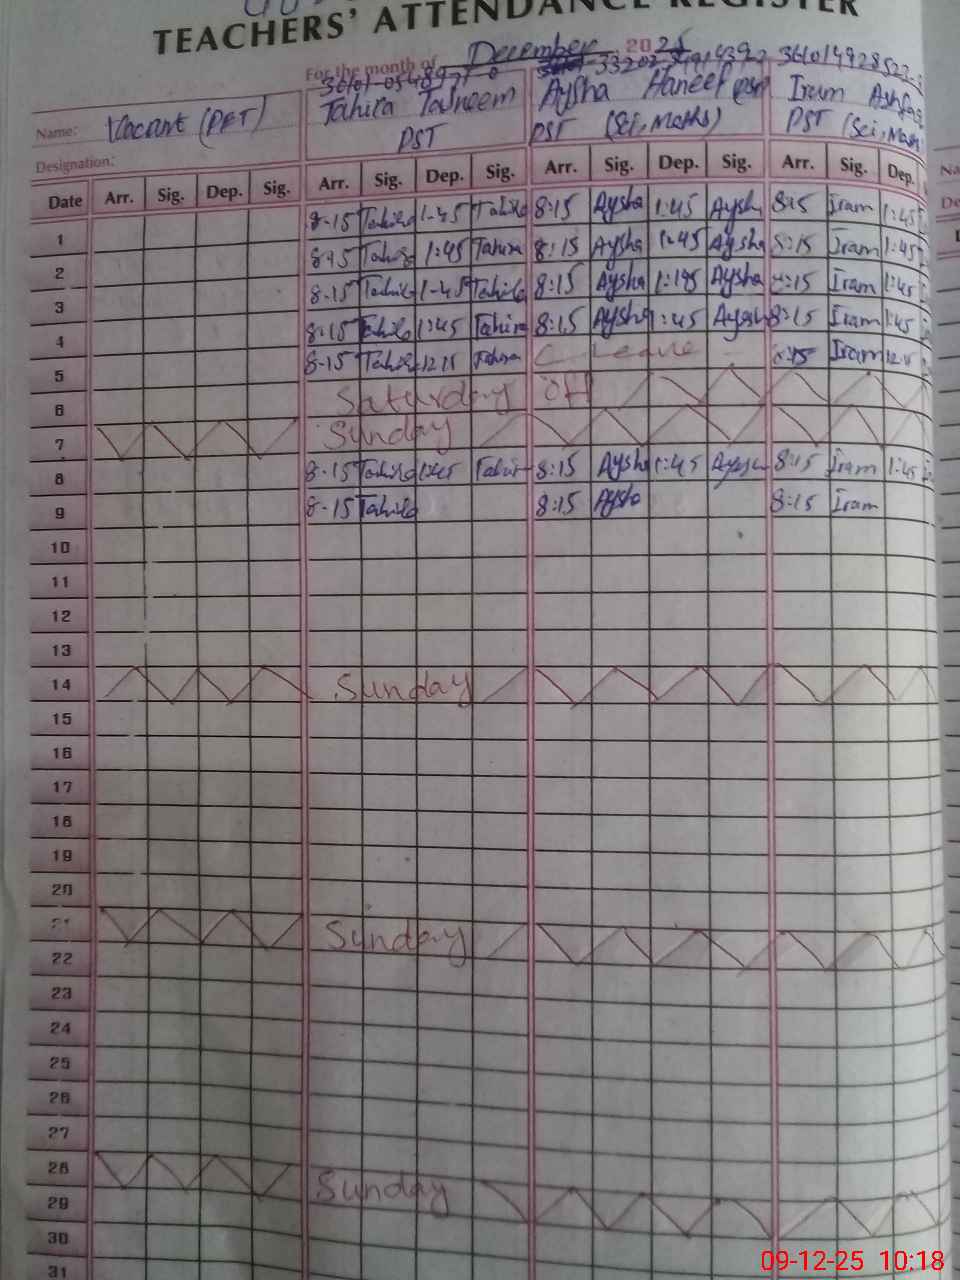 TEACHERS' ATTENDANCE REGISTER
For the month of December 2025
Name: Vacant (PET) Tahira Tasneem Aysha Haneef Iram Ashfaq
Designation: PST PST (Sci, Maths) PST (Sci, Math
Date Arr. Sig. Dep. Sig. Arr. Sig. Dep. Sig. Arr. Sig. Dep. Sig. Arr. Sig. Dep.
1 8-15 Tahira 1-45 Tahira 8:15 Aysha 1:45 Aysha 8:15 Iram 1:45
2 8-15 Tahira 1:45 Tahira 8:15 Aysha 1:45 Aysha 8:15 Iram 1:45
3 8-15 Tahira 1-45 Tahira 8:15 Aysha 1:45 Aysha 8:15 Iram 1:45
4 8-15 Tahira 1:45 Tahira 8:15 Aysha 1:45 Aysha 8:15 Iram 1:45
5 8-15 Tahira 12 15 Tahira C Leave 8:15 Iram 12:15
6 Saturday off
7 Sunday
8 8-15 Tahira 1:45 Tahira 8:15 Aysha 1:45 Aysha 8:15 Iram 1:45
9 8-15 Tahira 8:15 Aysha 8:15 Iram
10
11
12
13
14 Sunday
15
16
17
18
19
20
21 Sunday
22
23
24
25
26
27
28 Sunday
29
30
31
09-12-25 10:18